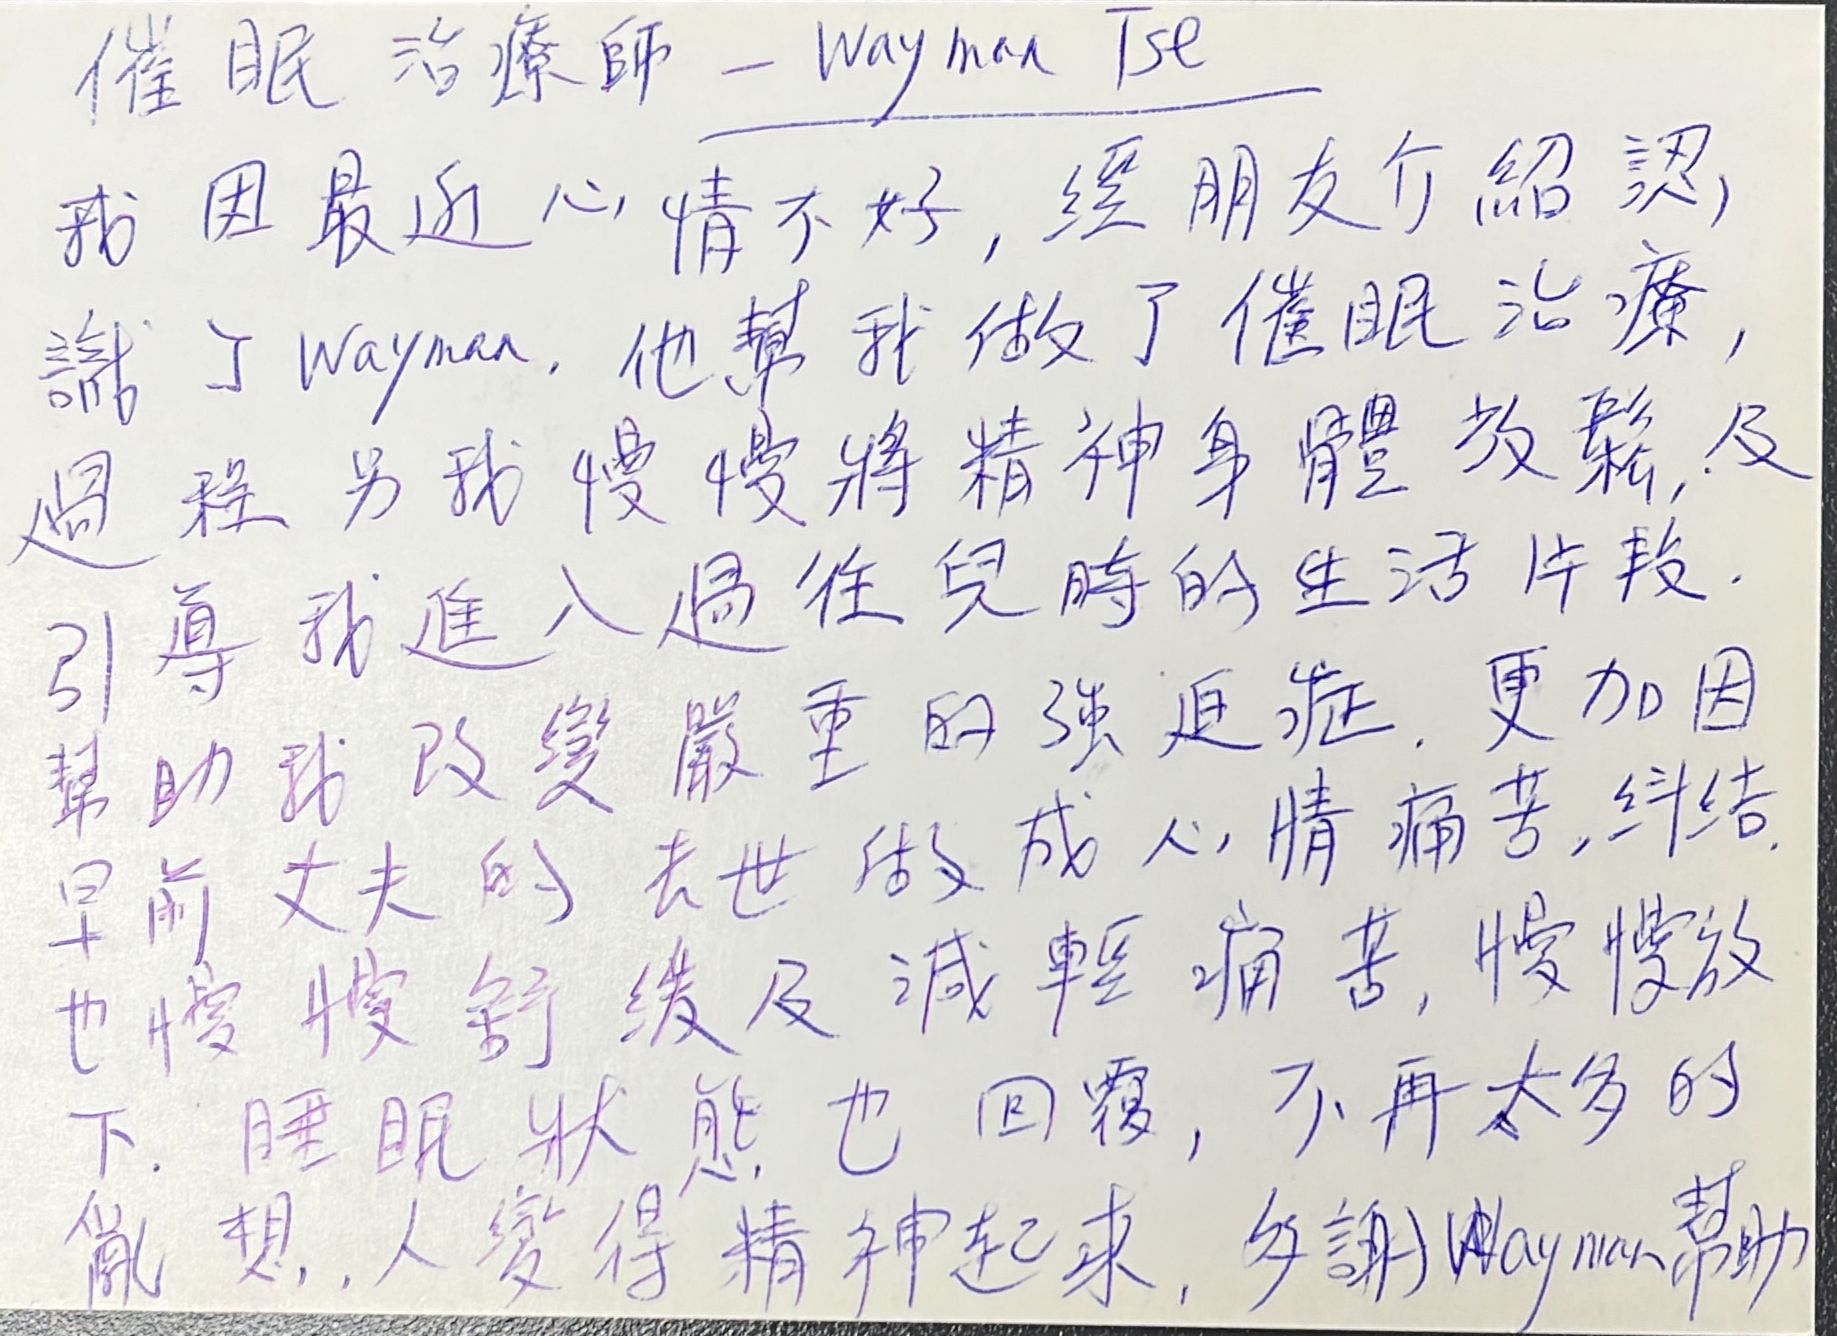 催眠治療師 — Wayman Tse
我因最近心情不好，經朋友介紹認，
識了Wayman. 他幫我做了催眠治療，
過程另我慢慢將精神身體放鬆，及
引導我進入過往兒時的生活片段.
幫助我改變嚴重的強迫症. 更加因
早前丈夫的去世做成心情痛苦，糾結.
也慢慢舒緩及減輕痛苦，慢慢放
下. 睡眠狀態也回覆，不再太多的
亂想，人變得精神起來，多謝Wayman幫助